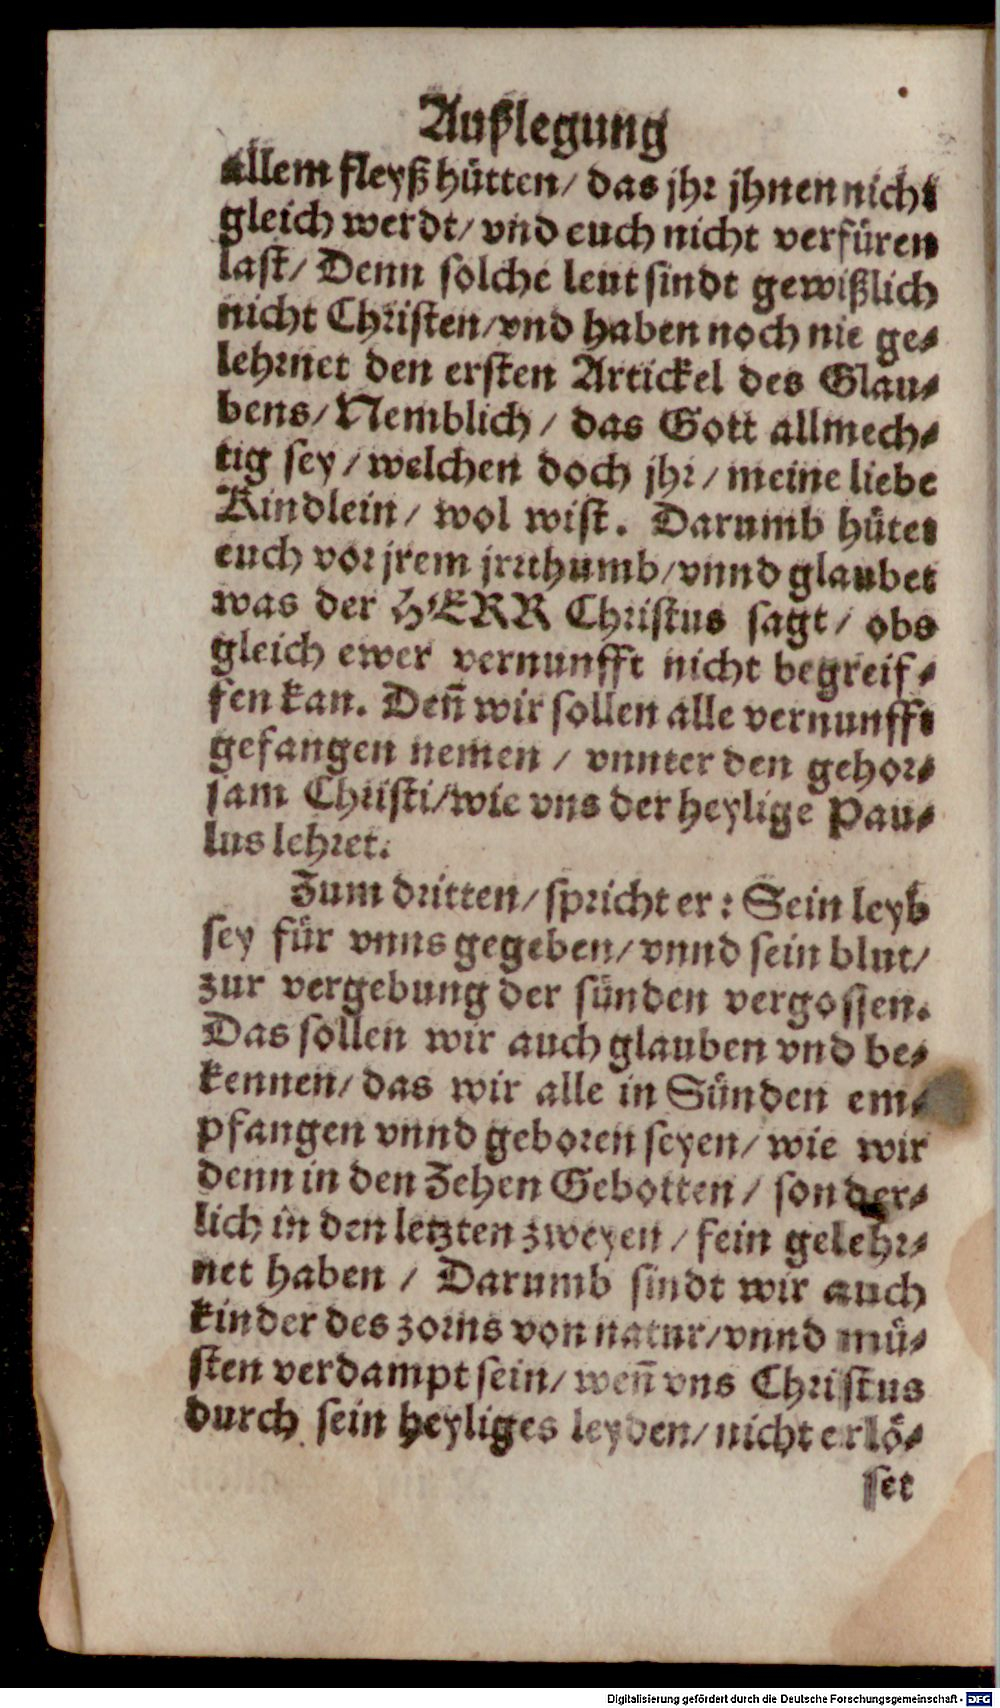 Außlegung
allem fleyß hütten/ das jhr jhnen nicht
gleich werdt/ vnd euch nicht verfüren
last/ Denn solche leut sindt gewißlich
nicht Christen/ vnd haben noch nie ge⸗
lehrnet den ersten Artickel des Glau⸗
bens/ Nemblich/ das Gott allmech⸗
tig sey/ welchen doch jhr/ meine liebe
Kindlein/ wol wist. Darumb hütet
euch vor jrem jrrthumb/ vnnd glaubet
was der HERR Christus sagt/ obs
gleich ewer vernunfft nicht begreif⸗
fen kan. Deñ wir sollen alle vernunfft
gefangen nemen/ vnnter den gehor⸗
sam Christi/ wie vns der heylige Pau⸗
lus lehret.
Zum dritten/ spricht er: Sein leyb
sey für vnns gegeben/ vnnd sein blut/
zur vergebung der sünden vergossen.
Das sollen wir auch glauben vnd be⸗
kennen/ das wir alle in Sünden em⸗
pfangen vnnd geboren seyen/ wie wir
denn in den Zehen Gebotten/ sonder⸗
lich in den letzten zweyen/ fein gelehr⸗
net haben/ Darumb sindt wir auch
kinder des zorns von natur/ vnnd mü⸗
sten verdampt sein/ weñ vns Christus
durch sein heyliges leyden/ nicht erlö⸗
set
Digitalisierung gefördert durch die Deutsche Forschungsgemeinschaft - DFG